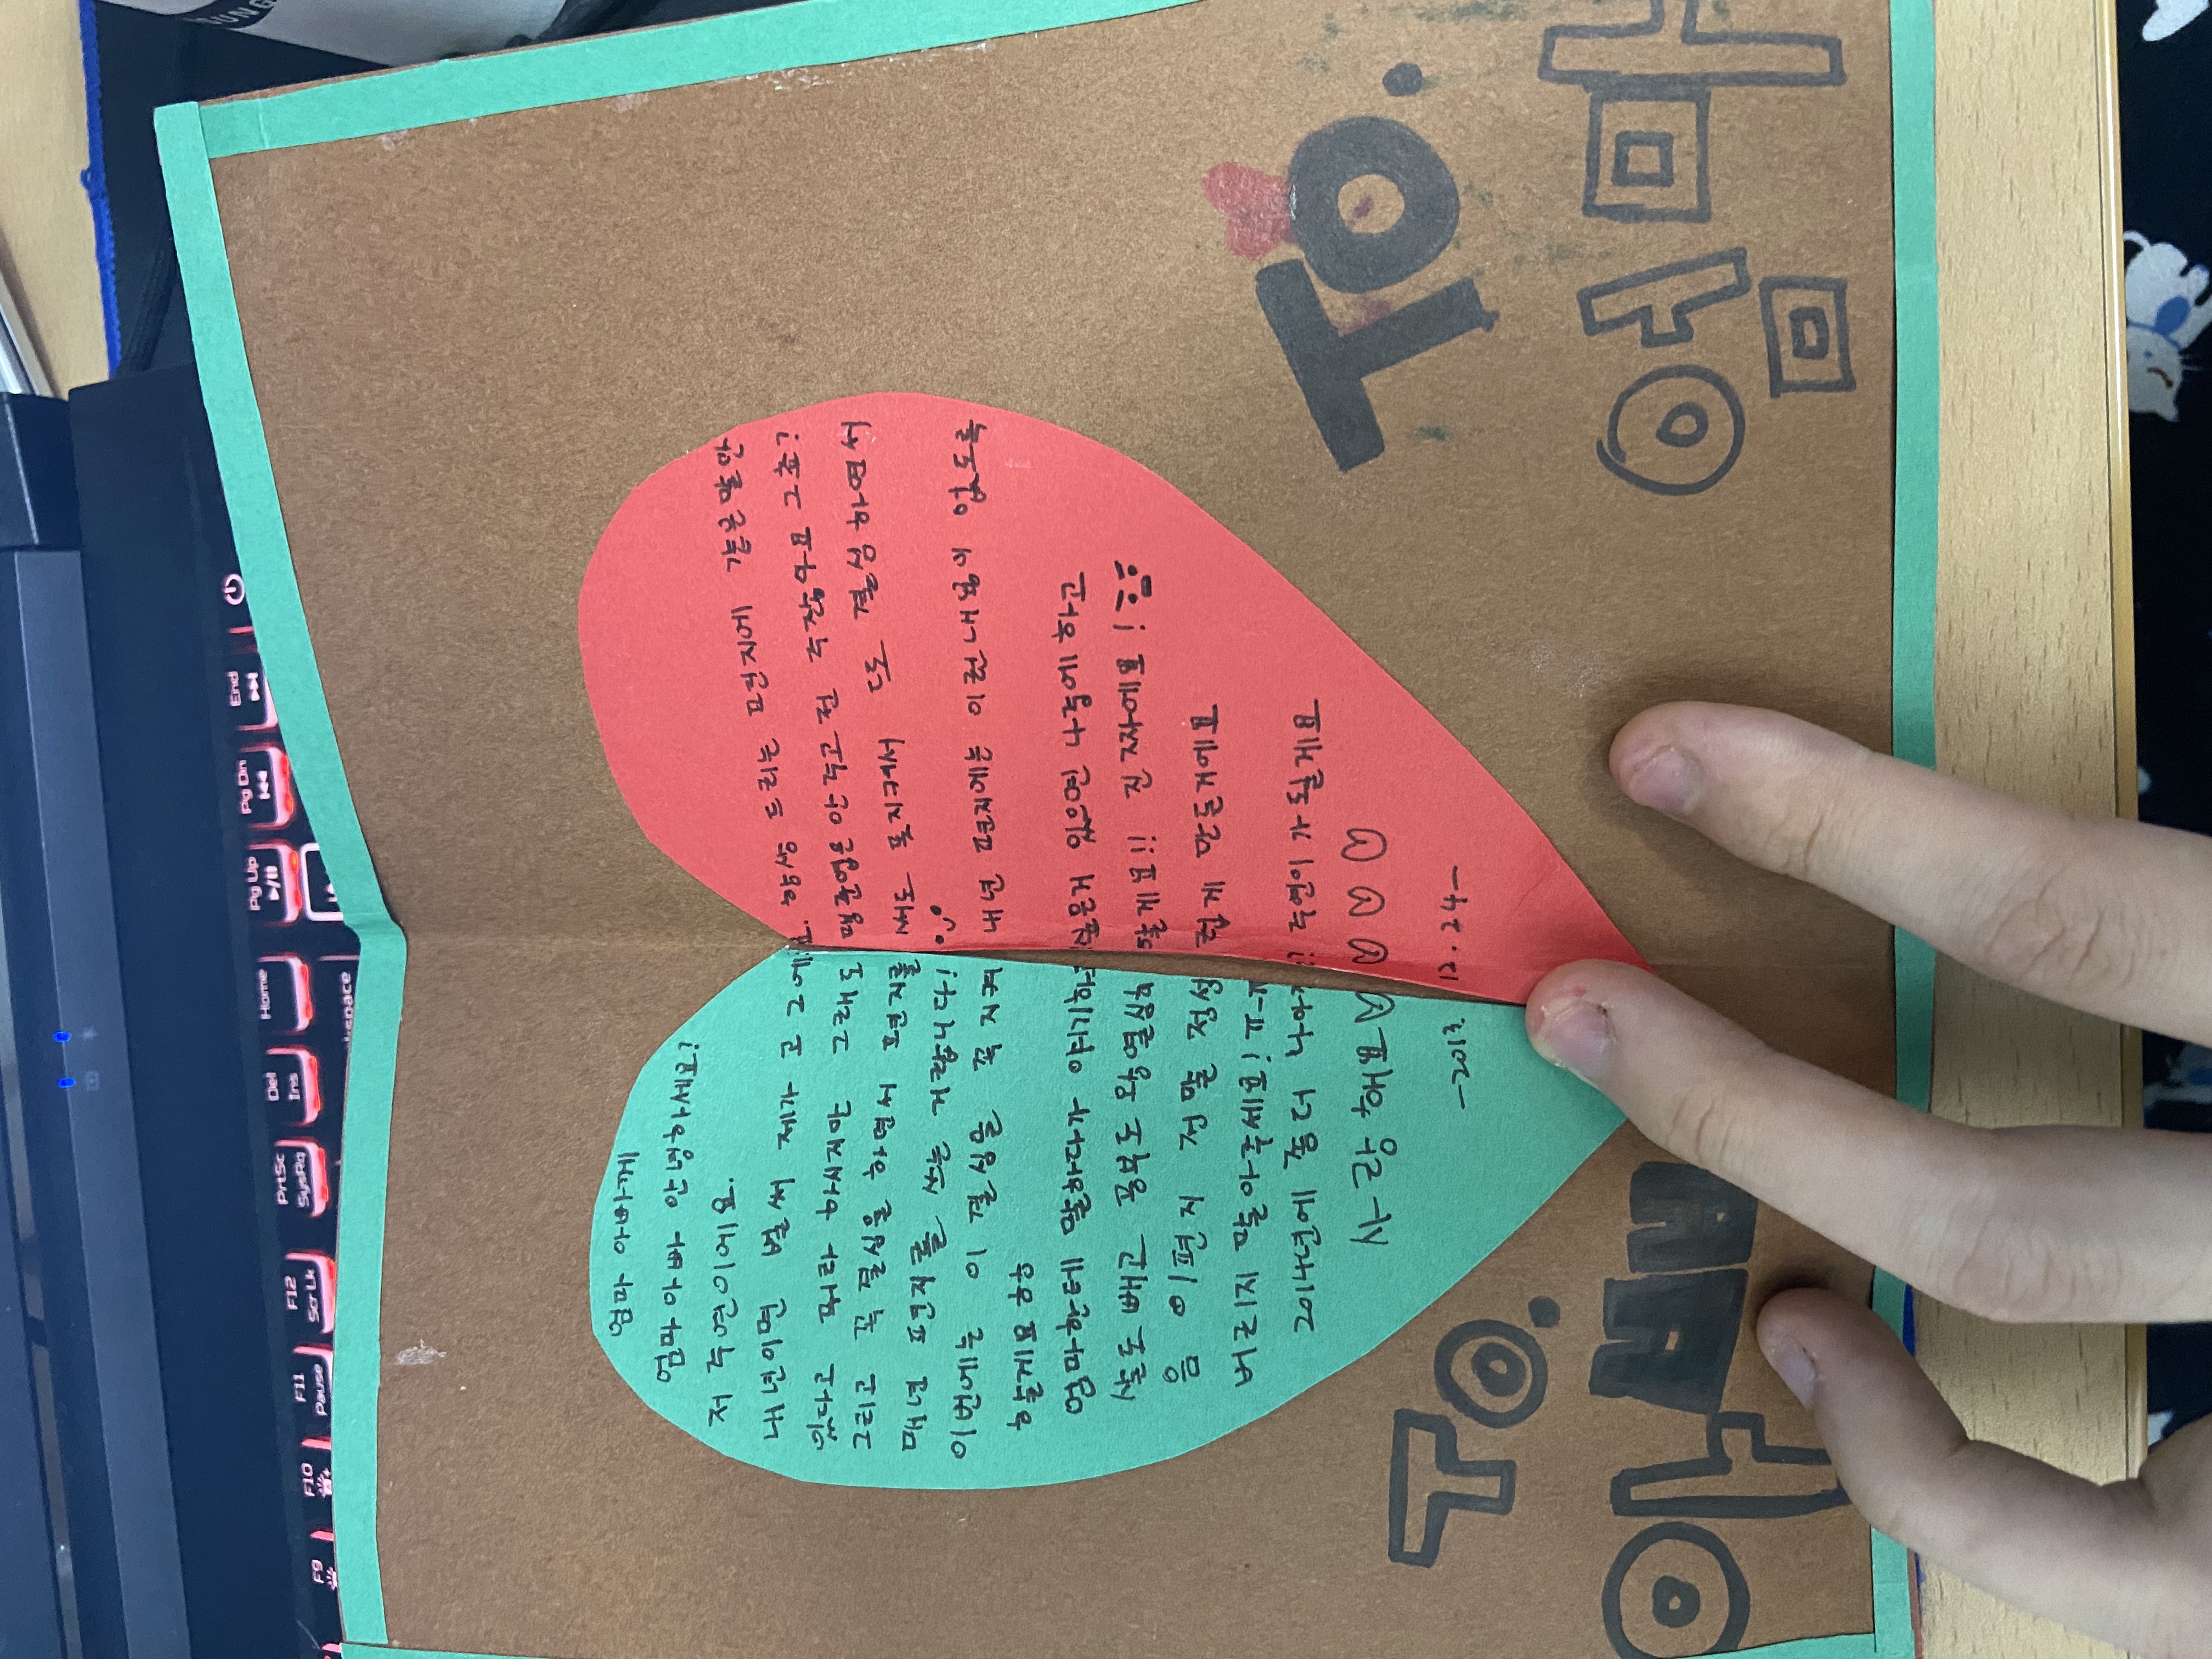 F9
F10
F11
Pause
F12
Scr Lk
PrtSc
SysRq
Del
Ins
Home
Pg Up
Pg Dn
End
엄마 아빠께
엄마 아빠 안녕하세요?
저 주연이에요.
내년이면 벌써 제가 고 그에요. 항상 드리는 편지에 같은말만
있다고 뭐라 하시지만 그래도 맹준엽은 안 주고 전 주잖아요 그쵸?
그리고 꼭 결심을 하면서 편지를 써도 못지켜서 또 결심 하면서
매년 편지를 쓰는 거랍니다!
이번에는 이 결심을 꼭 지켜 내년 편지에는 이런내용이 없도록
할게요 ㅎㅎ
엄마한테 말하다가 얘기하고싶은거 있으면 나중에 하고
살도 빼고 공부도 왕열심히 할게요!! 진짜에요!
음 이편지 정말 정성 럽게 만든거에요
버리지 말아주세요! ㅠ_ㅠ
2014년에 좀더 주연이가 될게요
사랑해요♡♡♡♡
—2013. 12. 24—
To.
아빠
To.
엄마